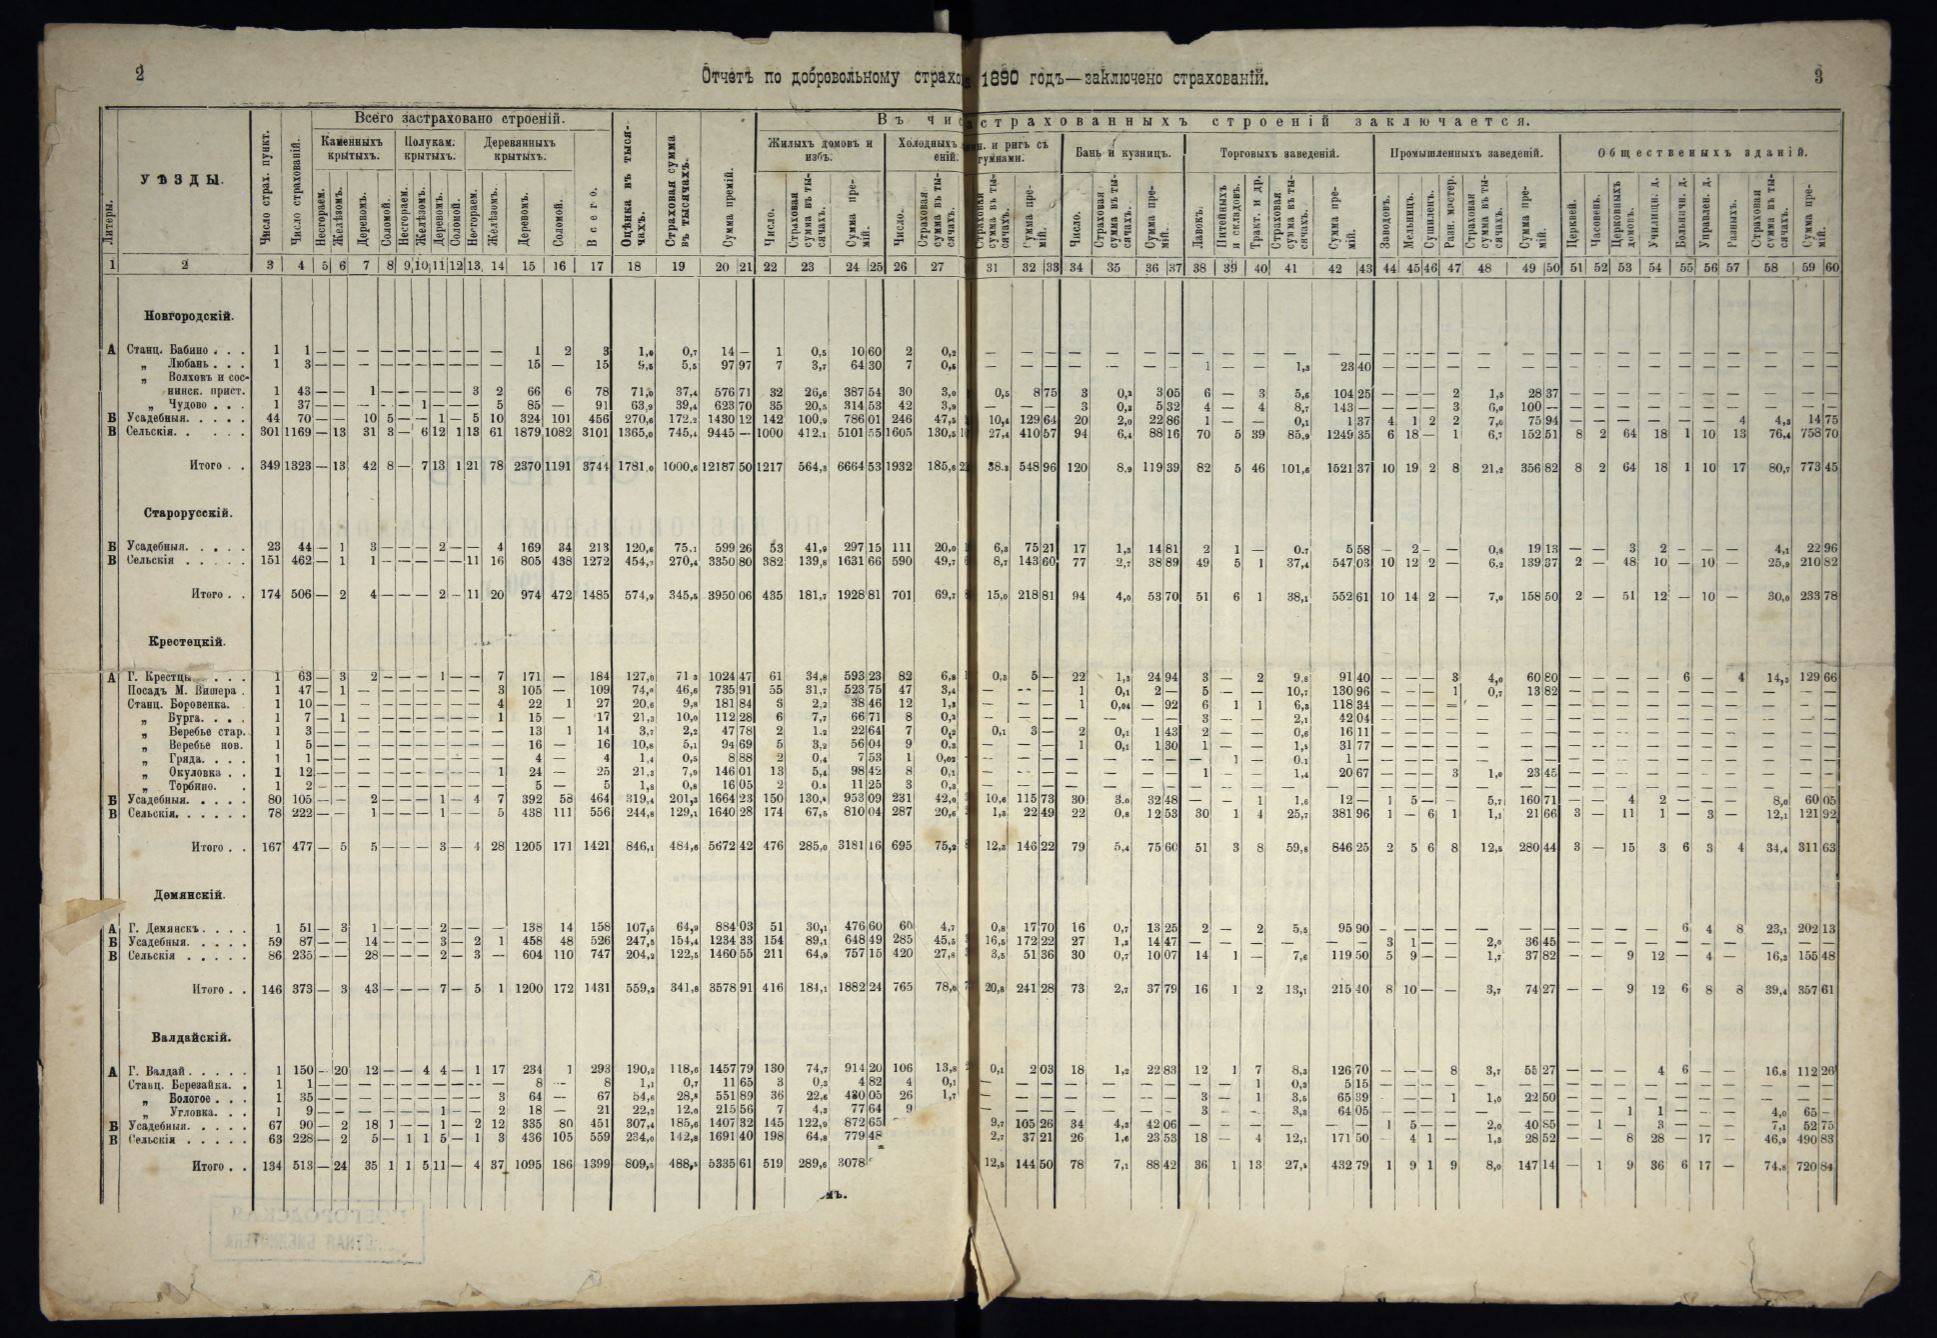 2
Отчетъ по добровольному страхо
1890 годъ—заключено страхованій.
3
Литеры.
УѢЗДЫ.
Число страх. пункт.
Число страхованій.
Всего застраховано строеній.
Каменныхъ крытыхъ.
Полукам. крытыхъ.
Деревянныхъ крытыхъ.
Несгораем. Желѣзомъ. Деревомъ. Соломой. Несгораем. Желѣзомъ. Деревомъ. Соломой. Несгораем. Желѣзомъ. Деревомъ. Соломой. Всего.
Оцѣнка въ тыся-
чахъ.
Страховая сумма
въ тысячахъ.
Сумма премій.
Въ чис
страхованныхъ строеній заключается.
Жилыхъ домовъ и
избъ.
Число. Страховая сумма въ ты-
сячахъ. Сумма пре-
мій.
Холодныхъ
еній.
Число. Страховая сумма въ ты-
сячахъ.
и ригъ съ
гумнами.
Страховая сумма въ ты-
сячахъ. Сумма пре-
мій.
Бань и кузницъ.
Число. Страховая сумма въ ты-
сячахъ. Сумма пре-
мій.
Торговыхъ заведеній.
Лавокъ. Питейныхъ и складовъ. Тракт. и др. Страховая сумма въ ты-
сячахъ. Сумма пре-
мій.
Промышленныхъ заведеній.
Заводовъ. Мельницъ. Сушиленъ. Разн. мастер. Страховая сумма въ ты-
сячахъ. Сумма пре-
мій.
Общественыхъ зданій.
Церквей. Часовень. Церковныхъ домовъ. Училищн. д. Больничн. д. Управлен. д. Разныхъ. Страховая сумма въ ты-
сячахъ. Сумма пре-
мій.
1 2 3 4 5 6 7 8 9 10 11 12 13 14 15 16 17 18 19 20 21 22 23 24 25 26 27
31 32 33 34 35 36 37 38 39 40 41 42 43 44 45 46 47 48 49 50 51 52 53 54 55 56 57 58 59 60
Новгородскій.
А Станц. Бабино . . . 1 1 — — — — — — — — — — 1 2 3 1,0 0,7 14 — 1 0,5 10 60 2 0,2
„ Любань . . . 1 3 — — — — — — — — — — 15 — 15 9,5 5,5 97 97 7 3,7 64 30 7 0,5 — — — — — — 1 — — 1,3 23 40
„ Волховъ и сос-
нинск. прист. 1 43 — — 1 — — — — — 3 2 66 6 78 71,0 37,4 576 71 32 26,6 387 54 30 3,0 0,5 8 75 3 0,2 3 05 6 — 3 5,6 104 25 — — — 2 1,5 28 37
„ Чудово . . . 1 37 — — — — — 1 — — — 5 85 — 91 63,9 39,4 623 70 35 20,5 314 53 42 3,9 — — — 3 0,3 5 32 4 — 4 8,7 143 — — — — 3 6,0 100 —
Б Усадебныя. . . . . 44 70 — — 10 5 — — 1 — 5 10 324 101 456 270,6 172,2 1430 12 142 100,9 786 01 246 47,5 10,4 129 64 20 2,0 22 86 1 — — 0,1 1 37 4 1 2 2 7,0 75 94 — — — — — — 4 4,3 14 75
В Сельскія. . . . . . 301 1169 — 13 31 3 — 6 12 1 13 61 1879 1082 3101 1365,0 745,4 9445 — 1000 412,1 5101 55 1605 130,5 27,4 410 57 94 6,4 88 16 70 5 39 85,9 1249 35 6 18 — 1 6,7 152 51 8 2 64 18 1 10 13 76,4 758 70
Итого . . 349 1323 — 13 42 8 — 7 13 1 21 78 2370 1191 3744 1781,0 1000,6 12187 50 1217 564,3 6664 53 1932 185,6 38,3 548 96 120 8,9 119 39 82 5 46 101,6 1521 37 10 19 2 8 21,2 356 82 8 2 64 18 1 10 17 80,7 773 45
Старорусскій.
Б Усадебныя. . . . . 23 44 — 1 3 — — — 2 — — 4 169 34 213 120,6 75,1 599 26 53 41,9 297 15 111 20,0 6,3 75 21 17 1,3 14 81 2 1 — 0,7 5 58 — 2 — — 0,8 19 13 — — 3 2 — — — 4,1 22 96
В Сельскія . . . . . 151 462 — 1 1 — — — — — 11 16 805 438 1272 454,3 270,4 3350 80 382 139,8 1631 66 590 49,7 8,7 143 60 77 2,7 38 89 49 5 1 37,4 547 03 10 12 2 — 6,2 139 37 2 — 48 10 — 10 — 25,9 210 82
Итого . . 174 506 — 2 4 — — — 2 — 11 20 974 472 1485 574,9 345,5 3950 06 435 181,7 1928 81 701 69,7 15,0 218 81 94 4,0 53 70 51 6 1 38,1 552 61 10 14 2 — 7,0 158 50 2 — 51 12 — 10 — 30,0 233 78
Крестецкій.
А Г. Крестцы . . . . 1 63 — 3 2 — — — 1 — — 7 171 — 184 127,0 71 3 1024 47 61 34,8 593 23 82 6,8 0,3 5 — 22 1,3 24 94 3 — 2 9,8 91 40 — — — 3 4,0 60 80 — — — — 6 — 4 14,3 129 66
Посадъ М. Вишера . 1 47 — 1 — — — — — — — 3 105 — 109 74,0 46,6 735 91 55 31,7 523 75 47 3,4 — — — 1 0,1 2 — 5 — — 10,7 130 96 — — — 1 0,7 13 82
Станц. Боровенка. 1 10 — — — — — — — — — 4 22 1 27 20,6 9,8 181 84 8 2,2 38 46 12 1,3 — — — 1 0,04 — 92 6 1 1 6,3 118 34
„ Бурга. . . . 1 7 — 1 — — — — — — — 1 15 — 17 21,3 10,0 112 28 6 7,7 66 71 8 0,3 — — — — — — 3 — — 2,1 42 04
„ Веребье стар. 1 3 — — — — — — — — — — 13 1 14 3,7 2,2 47 78 2 1,2 22 64 7 0,2 0,1 3 — 2 0,1 1 43 2 — — 0,6 16 11
„ Веребье нов. 1 5 — — — — — — — — — — 16 — 16 10,8 5,1 94 69 5 3,2 56 04 9 0,3 — — — 1 0,1 1 30 1 — — 1,5 31 77
„ Гряда. . . . 1 1 — — — — — — — — — — 4 — 4 1,4 0,5 8 88 2 0,4 7 53 1 0,02 — — — — — — — 1 — 0,1 1 —
„ Окуловка . . 1 12 — — — — — — — — — 1 24 — 25 21,3 7,9 146 01 13 5,4 98 42 8 0,1 — — — — — — 1 — — 1,4 20 67 — — — 3 1,0 23 45
„ Торбино. . 1 2 — — — — — — — — — — 5 — 5 1,8 0,8 16 05 2 0,5 11 25 3 0,3
Б Усадебныя. . . . . 80 105 — — 2 — — — 1 — 4 7 392 58 464 319,4 201,3 1664 23 150 130,4 953 09 231 42,0 10,6 115 73 30 3,0 32 48 — — 1 1,6 12 — 1 5 — — 5,7 160 71 — — 4 2 — — — 8,0 60 05
В Сельскія. . . . . . 78 222 — — 1 — — — 1 — — 5 438 111 556 244,8 129,1 1640 28 174 67,5 810 04 287 20,6 1,3 22 49 22 0,8 12 53 30 1 4 25,7 381 96 1 — 6 1 1,1 21 66 3 — 11 1 — 3 — 12,1 121 92
Итого . . 167 477 — 5 5 — — — 3 — 4 28 1205 171 1421 846,1 484,6 5672 42 476 285,0 3181 16 695 75,2 12,3 146 22 79 5,4 75 60 51 3 8 59,8 846 25 2 5 6 8 12,5 280 44 3 — 15 3 6 3 4 34,4 311 63
Демянскій.
А Г. Демянскъ. . . . 1 51 — 3 1 — — — 2 — — — 138 14 158 107,5 64,9 884 03 51 30,1 476 60 60 4,7 0,8 17 70 16 0,7 13 25 2 — 2 5,5 95 90 — — — — — — — — — — — 6 4 8 23,1 202 13
Б Усадебныя. . . . . 59 87 — — 14 — — — 3 — 2 1 458 48 526 247,5 154,4 1234 33 154 89,1 648 49 285 45,5 16,5 172 22 27 1,3 14 47 — — — — — — 3 1 — — 2,0 36 45
В Сельскія . . . . . 86 235 — — 28 — — — 2 — 3 — 604 110 747 204,2 122,5 1460 55 211 64,9 757 15 420 27,8 3,5 51 36 30 0,7 10 07 14 1 — 7,6 119 50 5 9 — — 1,7 37 82 — — 9 12 — 4 — 16,3 155 48
Итого . . 146 373 — 3 43 — — — 7 — 5 1 1200 172 1431 559,2 341,8 3578 91 416 184,1 1882 24 765 78,0 20,8 241 28 73 2,7 37 79 16 1 2 13,1 215 40 8 10 — — 3,7 74 27 — — 9 12 6 8 8 39,4 357 61
Валдайскій.
А Г. Валдай . . . . . 1 150 — 20 12 — — 4 4 — 1 17 234 1 293 190,2 118,6 1457 79 130 74,7 914 20 106 13,8 0,1 2 03 18 1,2 22 83 12 1 7 8,3 126 70 — — — 8 3,7 55 27 — — — 4 6 — — 16,8 112 26
Станц. Березайка. . 1 1 — — — — — — — — — — 8 — 8 1,1 0,7 11 65 3 0,3 4 82 4 0,1 — — — — — — — — 1 0,3 5 15
„ Бологое . . . 1 35 — — — — — — — — — 3 64 — 67 54,6 28,8 551 89 36 22,6 430 05 26 1,7 — — — — — — 3 — 1 3,5 65 39 — — — 1 1,0 22 50
„ Угловка. . . 1 9 — — — — — — 1 — — 2 18 — 21 22,2 12,0 215 56 7 4,3 77 64 9 — — — — — — 3 — — 3,3 64 05 — — — — — — — — — 1 1 — — — 4,0 65 —
Б Усадебныя. . . . . 67 90 — 2 18 1 — — 1 — 2 12 335 80 451 307,4 185,6 1407 32 145 122,9 872 65 9,7 105 26 34 4,3 42 06 — — — — — — 1 5 — — 2,0 40 85 — 1 — 3 — — — 7,1 52 75
В Сельскія . . . . . 63 228 — 2 5 — 1 1 5 — 1 3 436 105 559 234,0 142,8 1691 40 198 64,8 779 48 2,7 37 21 26 1,6 23 53 18 — 4 12,1 171 50 — 4 1 — 1,3 28 52 — — 8 28 — 17 — 46,9 490 83
Итого . . 134 513 — 24 35 1 1 5 11 — 4 37 1095 186 1399 809,5 488,5 5335 61 519 289,6 3078 12,5 144 50 78 7,1 88 42 36 1 13 27,5 432 79 1 9 1 9 8,0 147 14 — 1 9 36 6 17 — 74,8 720 84